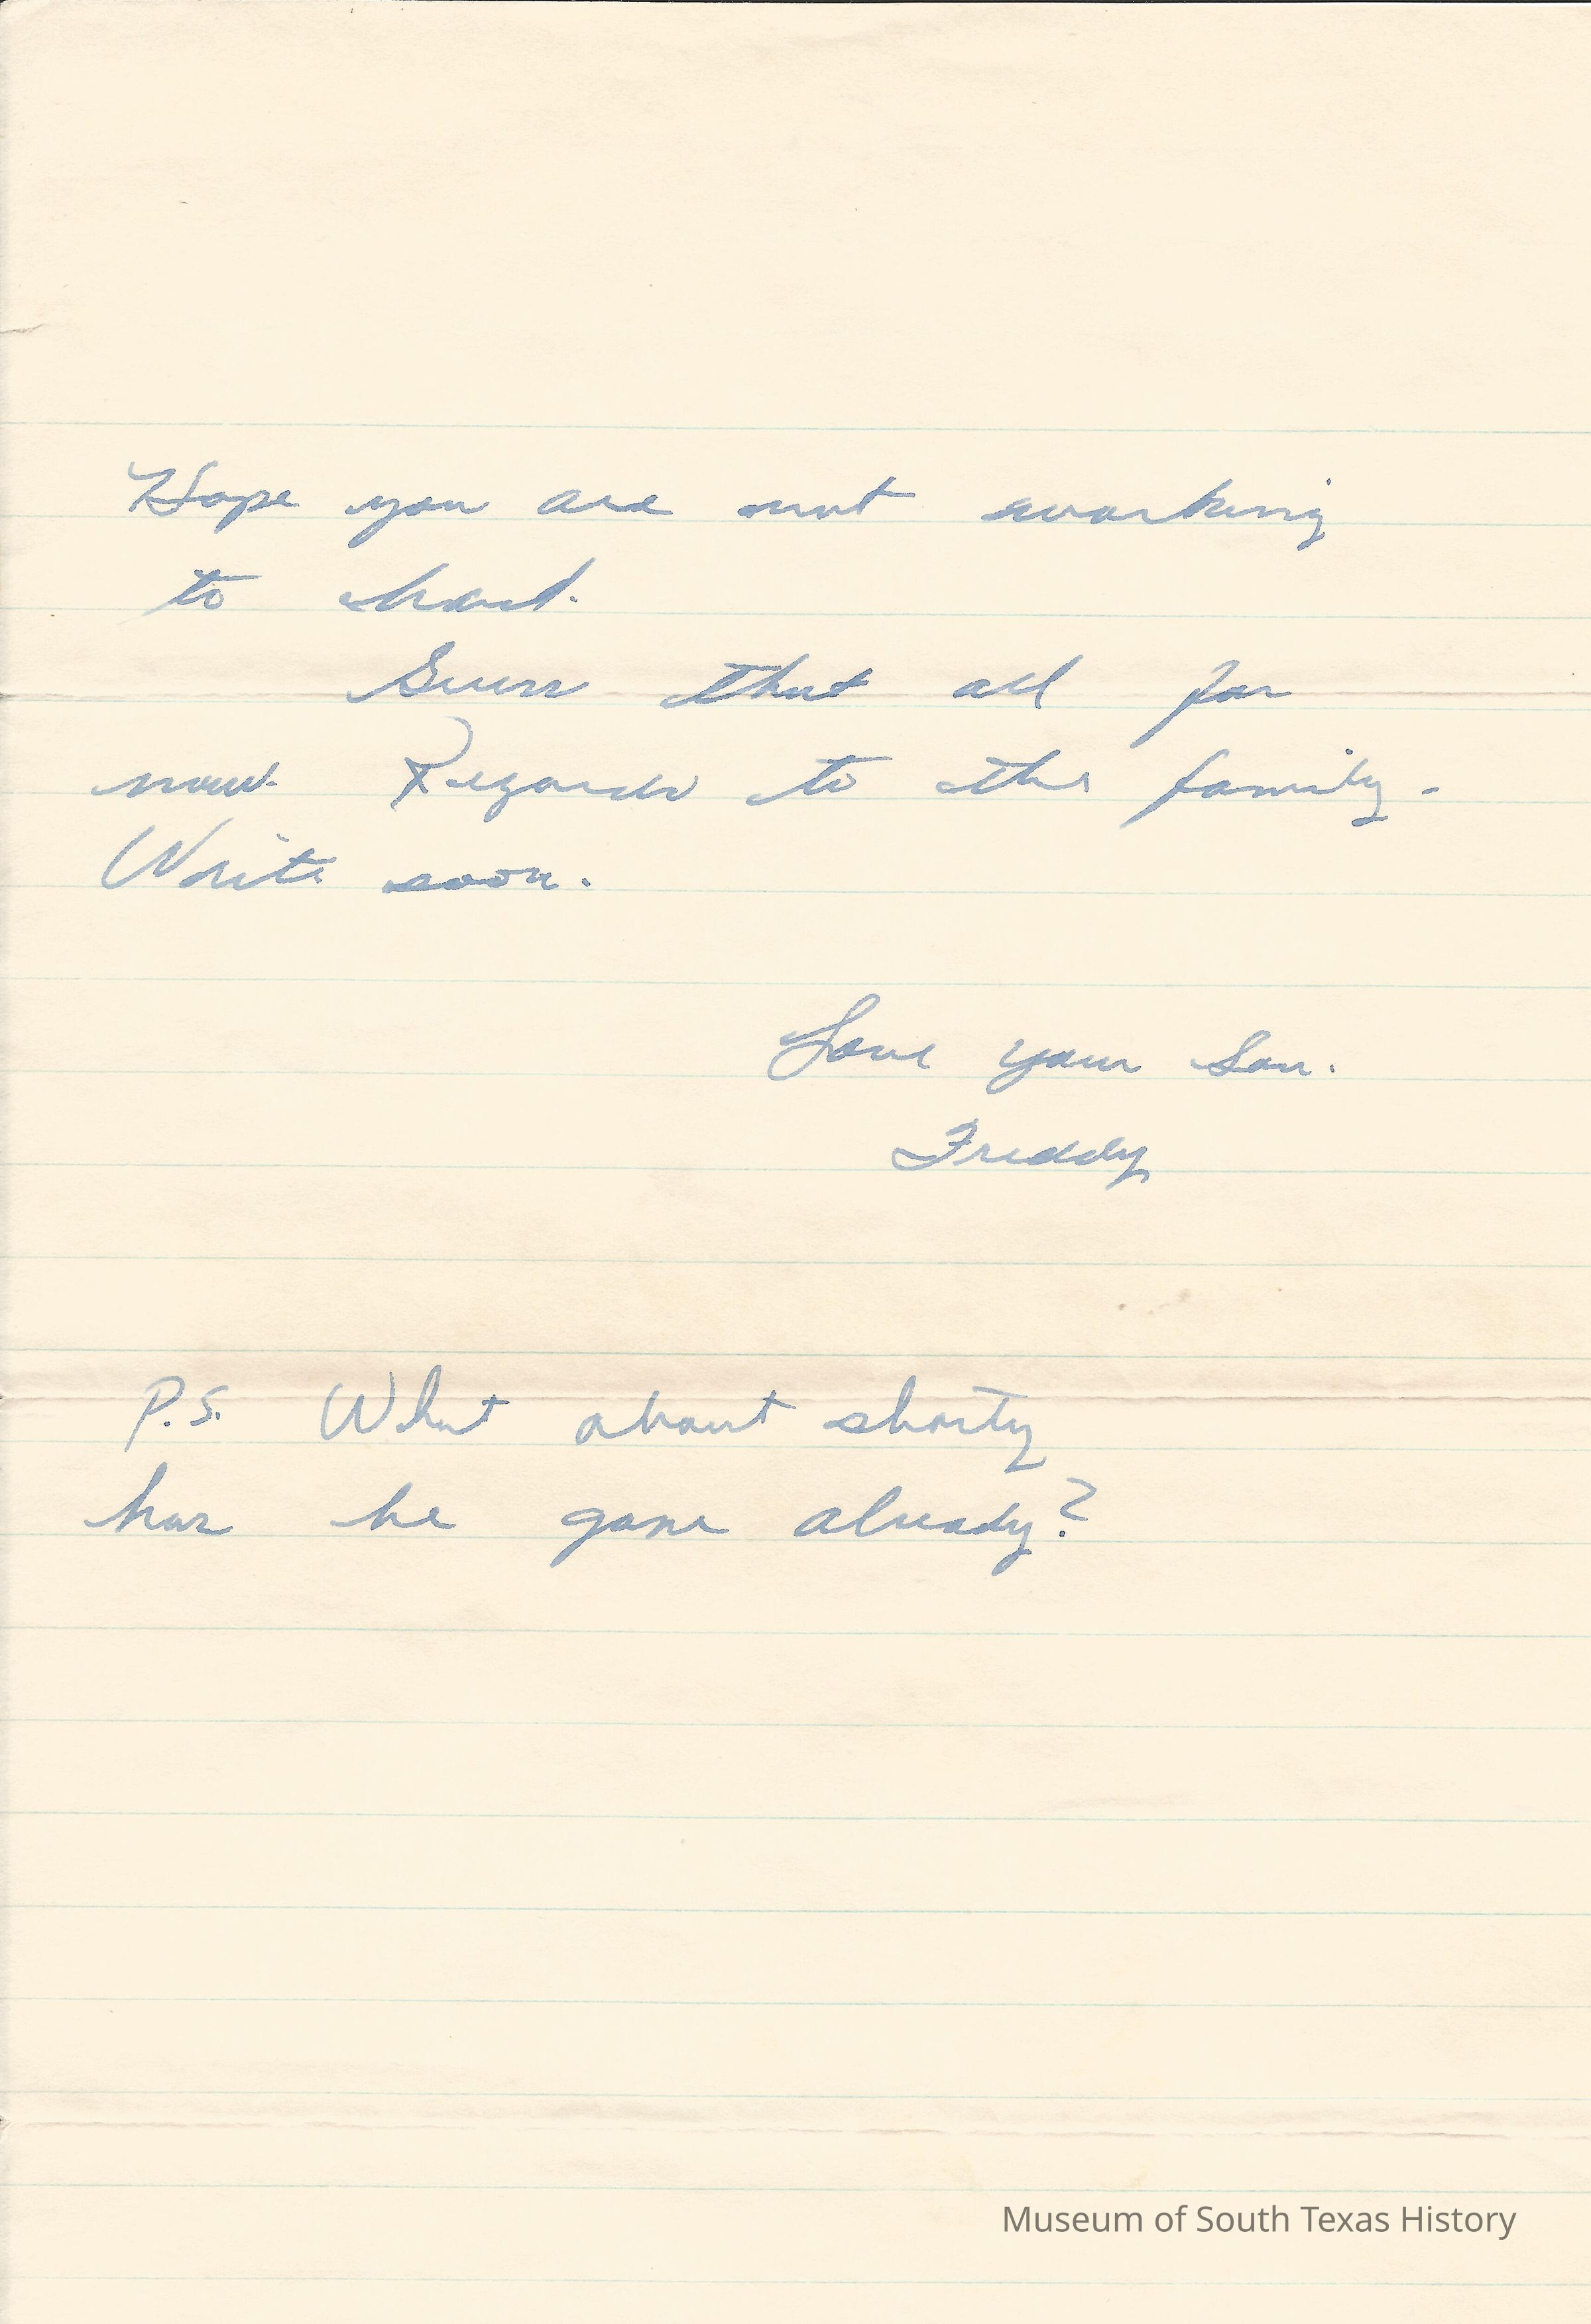 Hope you are not working
to hard.
Guess that all for
now. Regards to the family.
Write soon.
Love your Son.
Freddy
P.S. What about shorty
has he gone already?
Museum of South Texas History